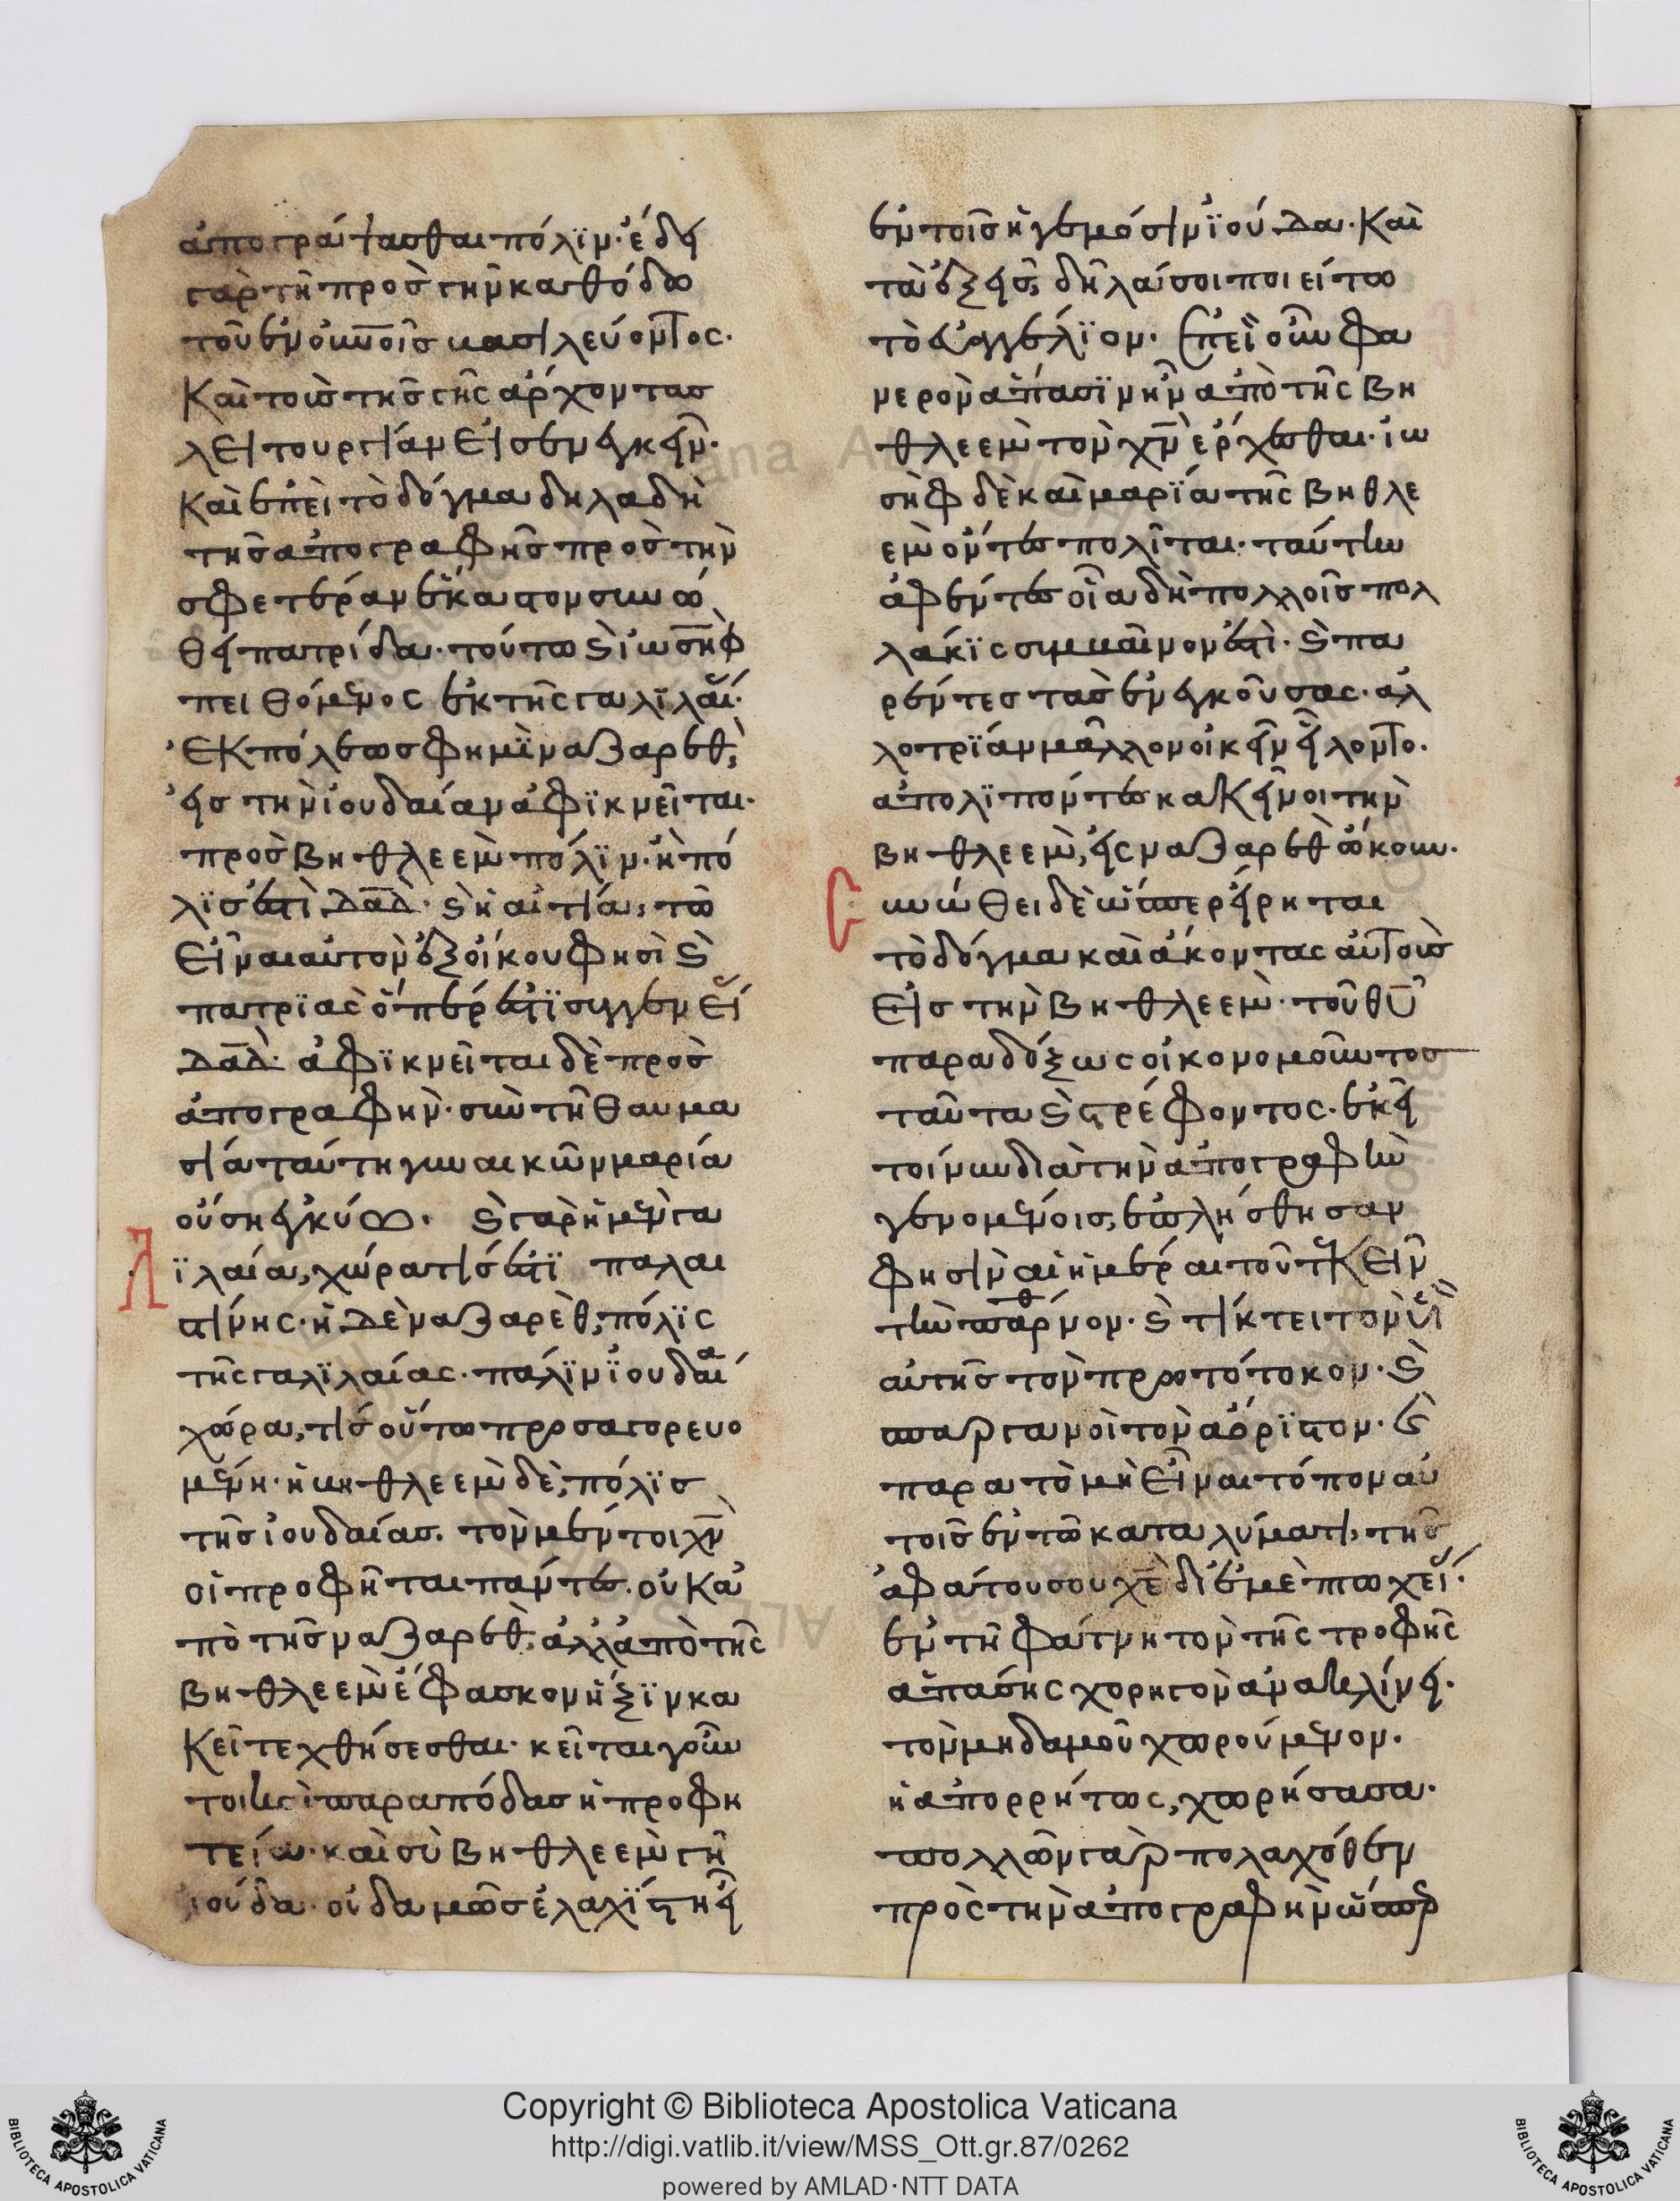 ἀπογράψασθαι πόλιν· ἔδει
γὰρ τῆ πρὸς τὴν καθόδω
τοῦ ἐν οὐνοῖς βασιλεύοντος·
Καὶ τοὺς τῆς γῆς ἄρχοντας
λειτουργίαν εἰσενεγκεῖν·
Καὶ ἐπεὶ τὸ δόγμα δηλαδὴ
τῆς ἀπογραφῆς πρὸς τὴν
σφετέραν ἕκαστον συνω
θεῖ πατρίδα· τούτω καὶ ἰωσὴφ
πειθόμενος ἐκ τῆς γαλιλαί·
ἐκ πόλεως φημὶ ναζαρέθ,
εἰς τὴν ἰουδαίαν ἀφικνεῖται·
πρὸς βηθλεεμ πόλιν· ἡ πό
λις ἐστὶ δαδ· καὶ ἡ αἰτία, τὸ
εἶναι αὐτὸν ἐξ οἴκου φησὶ καὶ
πατριᾶς ὅπερ ἐστὶ συγγενεί
δαδ· ἀφικνεῖται δὲ πρὸς
ἀπογραφὴν· σὺν τῆ θαυμα
σία ταύτη γυναικῶν μαρία
οὔση ἐγκύω· καὶ γὰρ ἡ μὲν γα
λιλαία, χώρα τίς ἐστι παλαι
στίνης· ἡ δὲ ναζαρὲθ, πόλις
τῆς γαλιλαίας· πάλιν ἰουδαία
χώρα, τίς οὕτω προσαγορευο
μένη· ἡ βηθλεεμ δὲ, πόλις
τῆς ἰουδαίας. τὸν μέντοι χν
οἱ προφῆται πάντες· οὐκ ἀ
πὸ τῆς ναζαρέθ, ἀλλ' ἀπὸ τῆς
βηθλεεμ ἔφασκον ἥξιν κα
κεῖ τεχθήσεσθαι· κεῖται γοῦν
παραπόδας ἡ προφη
τεία· καὶ σὺ βηθλεεμ γῆ
ἰούδα· οὐδαμῶς ἐλαχίστη εἶ
ἐν τοῖς ἡγεμόσιν ἰούδα· Καὶ
τὰ ἑξῆς, δῆλά σοι ποιείτω
τὸ εὐαγγέλιον· Ἐπεὶ οὖν φα
νερὸν ἅπασιν ἦν ἀπὸ τῆς βη
θλεεμ τὸν χν ἔρχεσθαι· ἰω
σὴφ δὲ καὶ μαρία τῆς βηθλε
εμ ὄντες πολῖται· ταύτην
ἀφέντες οἷα δὴ πολλοῖς πολ
λάκις συμβαῖνον ἐστὶ· καὶ πα
ρέντες τὰς ἐνεγκούσας· ἀλ
λοτρίαν μᾶλλον οἰκεῖν εἵλοντο·
ἀπολιπόντες κακεῖνοι τὴν
βηθλεεμ, εἰς ναζαρὲθ ὤκουν·
Συνωθεῖ δὲ ὥσπερ εἴρηται
τὸ δόγμα καὶ ἄκοντας αὐτοὺς
εἰς τὴν βηθλεεμ· τοῦ θυ
παραδόξως οἰκονομοῦντος
ταῦτα καὶ στρέφοντος· ἐκεῖ
τοίνυν διὰ τὴν ἀπογραφὴν
γενομένοις, ἐπλήσθησαν
φησὶν αἱ ἡμέραι τοῦ τεκεῖν
τὴν παρθένον· καὶ τίκτει τὸν υἱὸν
αὐτῆς τὸν πρωτότοκον· καὶ
σπαργανοῖ τὸν ἀόριστον· καὶ
παρὰ τὸ μὴ εἶναι τόπον αὐ
τοῖς ἐν τῶ καταλύματι, τῆς
ἀφάτου σου χε δι' ἐμὲ πτωχεί·
ἐν τῆ φάτνη τὸν τῆς τροφῆς
ἁπάσης χορηγὸν ἀνακλίνει·
τὸν μηδαμοῦ χωρούμενον·
ἡ ἀπορρήτως, χωρήσασα·
πολλῶν γὰρ πολαχόθεν
πρὸς τὴν ἀπογραφὴν ὥσπερ
Copyright © Biblioteca Apostolica Vaticana
http://digi.vatlib.it/view/MSS_Ott.gr.87/0262
powered by AMLAD·NTT DATA
BIBLIOTECA APOSTOLICA VATICANA
BIBLIOTECA APOSTOLICA VATICANA